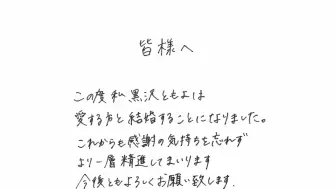 皆様へ
この度私 黒沢ともよは
愛する方と結婚することになりました。
これからも感謝の気持ちを忘れず
より一層精進してまいります
今後ともよろしくお願い致します.